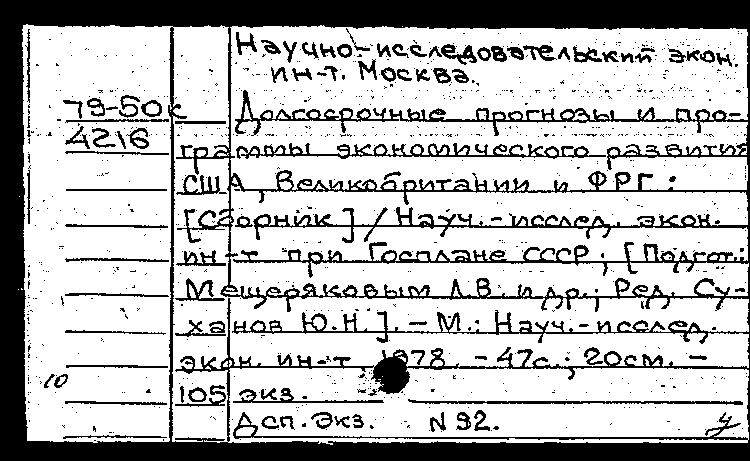 Научно-исследовательский экон.
ин-т. Москва.
79-50к Долгосрочные прогнозы и про-
4216 граммы экономического развития
США, Великобритании и ФРГ:
[Сборник] / Науч.-исслед. экон.
ин-т при Госплане СССР; [Подгот.:
Мещеряковым Л.В. и др.; Ред. Су-
ханов Ю.Н.]. – М.: Науч.-исслед.
экон. ин-т, 1978. – 47с.; 20см. –
10 105 экз.
Дсп. Экз. N 92. у